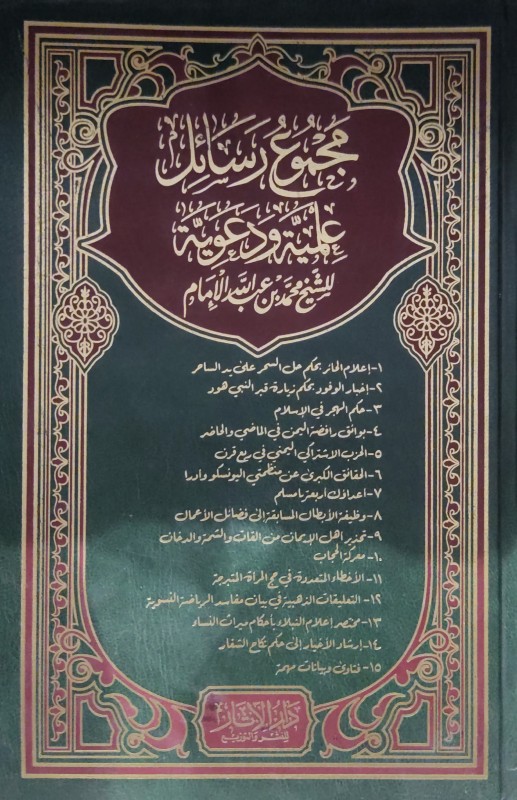 مَجْمُوعُ رَسَائِل
عِلْمِيَّة وَدَعَوِيَّة
لِلشَّيْخ مُحَمَّد بْن عَبْدِ اللهِ الإِمَام
١- إعلام الحائر بحكم حل السحر على يد الساحر
٢- إخبار الوفود بحكم زيارة قبر النبي هود
٣- حكم الهجر في الإسلام
٤- بوائق رافضة اليمن في الماضي والحاضر
٥- الحزب الاشتراكي اليمني في ربع قرن
٦- الحقائق الكبرى عن منظمتي اليونسكو وادرا
٧- أعداؤك أربعة يا مسلم
٨- وظيفة الأبطال المسابقة إلى فضائل الأعمال
٩- تحذير أهل الإيمان من القات والشمة والدخان
١٠- معركة الحجاب
١١- الأخطاء المتعددة في حج المرأة المتبرجة
١٢- التعليقات الذهبية في بيان مفاسد الرياضة النسوية
١٣- مختصر إعلام النبلاء بأحكام ميراث النساء
١٤- إرشاد الأخيار إلى حكم نكاح الشغار
١٥- فتاوى وبيانات مهمة
دار الآثار
للنشر والتوزيع